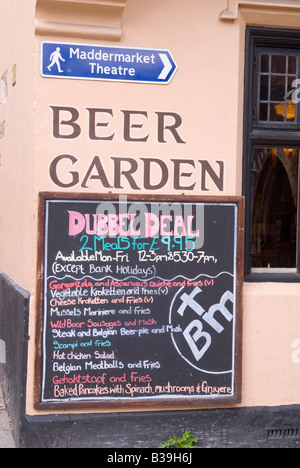 Maddermarket
Theatre
BEER
GARDEN
DUBBEL DEAL
2 Meals for £9.95
Available Mon-Fri 12-3pm & 5.30-7pm,
(Except Bank Holidays)
Gorgonzola and Asparagus Quiche and fries (v)
Vegetable Kroketten and Fries (v)
Cheese Kroketten and Fries (v)
Mussels Mariniere and Fries
Wild Boar Sausages and Mash
Steak and Belgian Beer pie and Mash
Scampi and fries
Hot chicken Salad
Belgian Meatballs and Fries
Gehaktstaaf and Fries
Baked Pancakes with Spinach, mushrooms & Gruyere
+
Bm
alamy
B39H6J
www.alamy.com